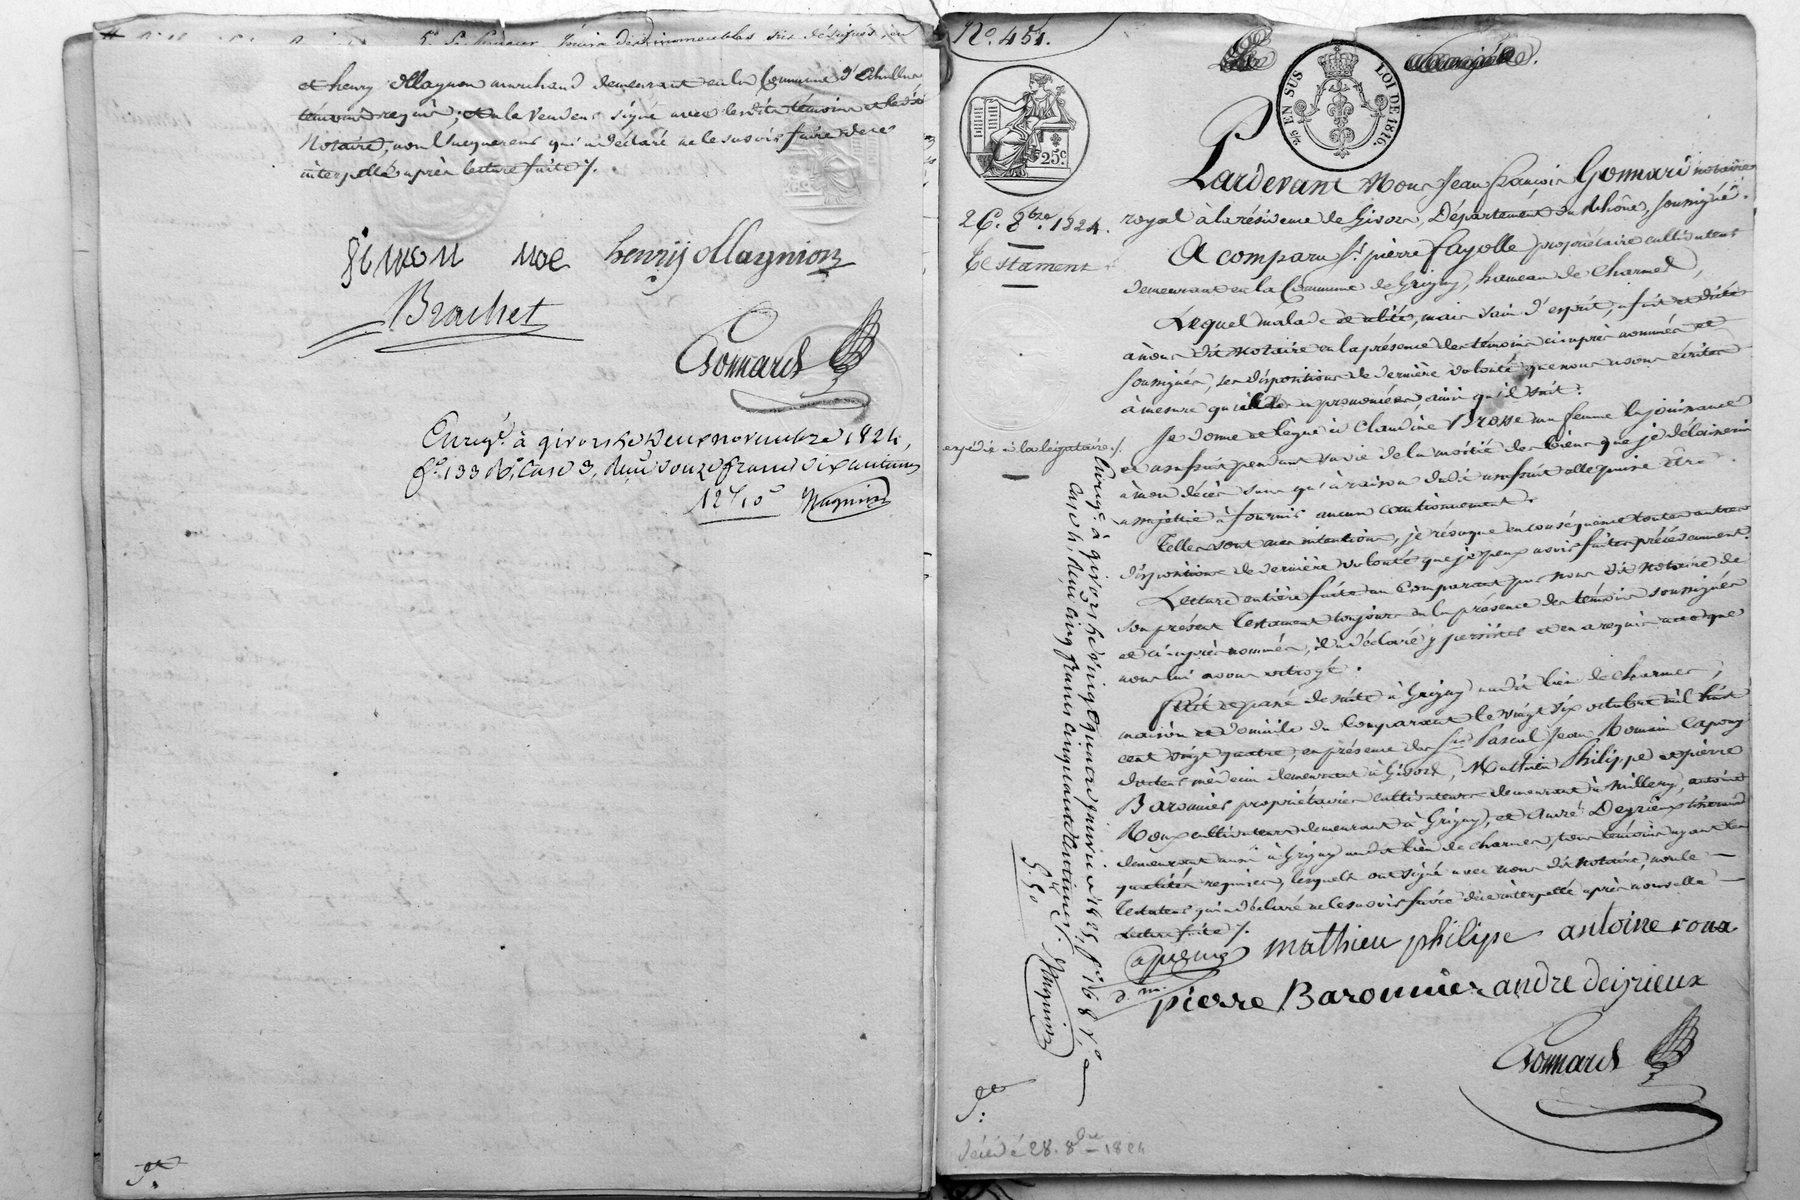 et henry Magnon marchand demeurant en la Commune d'Echallas
témoins requis; et la vendeur signé avec lesdits témoins et ledit
Notaire, non l'acquereur qui a déclaré ne le savoir faire de ce
interpellé après lecture faite ./.
Simon noe henrij Magnion
Brachet
Gonnard
Enreg.é à givors le deux novembre 1824,
f.o 133 R.o Case 3, Reçu douze francs dix centimes
12f 10c Magnin
N.o 451.
25c.
2/10 EN SUS LOI DE 1816.
26. 8bre. 1824.
Testament
Pardevant Nous Jean françois Gonnard notaire
royal à la résidence de Givors, Département du Rhône, soussigné.
A comparu S.r pierre fayolle propriétaire cultivateur
demeurant en la Commune de Grigny, hameau de Charmes,
Lequel malade et alité, mais sain d'esprit, a fait et dicté
à nous dit Notaire en la présence des témoins ci-après nommés et
soussignés, ses dispositions de dernière volonté que nous avons écrites
à mesure qu'il les a prononcées ainsi qu'il suit:
Je donne et lègue à Claudine Brosse ma femme la jouissance
et usufruit pendant sa vie de la moitié des biens que je délaisserai
à mon décès sans qu'à raison dudit usufruit elle puisse être
assujettie à fournir aucun cautionnement.
Telles sont mes intentions, je révoque en conséquence toutes autres
dispositions de dernière volonté que je peux avoir faites précédemment.
Lecture entière faite au Comparant par nous dit Notaire de
son présent testament toujours en la présence des témoins soussignés
et ci-après nommés, il a déclaré y persister et en a requis acte que
nous lui avons octroyé.
fait et passé de suite à Grigny audit lieu de charmes,
maison et domicile du Comparant le vingt six octobre mil huit
cent vingt quatre, en présence des Srs Pascal Jean Romain
docteur médecin demeurant à Givors, Mathieu Philippe et pierre
Baronnier propriétaires cultivateurs demeurant à Millery, antoine
Roux cultivateur demeurant à Grigny, et André Deyrieux
demeurant aussi à Grigny audit lieu de charmes, tous témoins ayant les
qualités requises, lesquels ont signé avec nous dit Notaire, non le
Testateur qui a déclaré ne le savoir faire de ce interpellé après nouvelle
Lecture faite ./.
mathieu philipe antoine roux
d. m.
pierre Baronnier andre deyrieux
Gonnard
expédié à la légataire ./.
Enreg.é à givors le vingt quatre janvier 1825, f.o 168 V.o
Case 4, Reçu cinq francs cinquante centimes.
5f. 50 Magnin
28. 8bre 1824